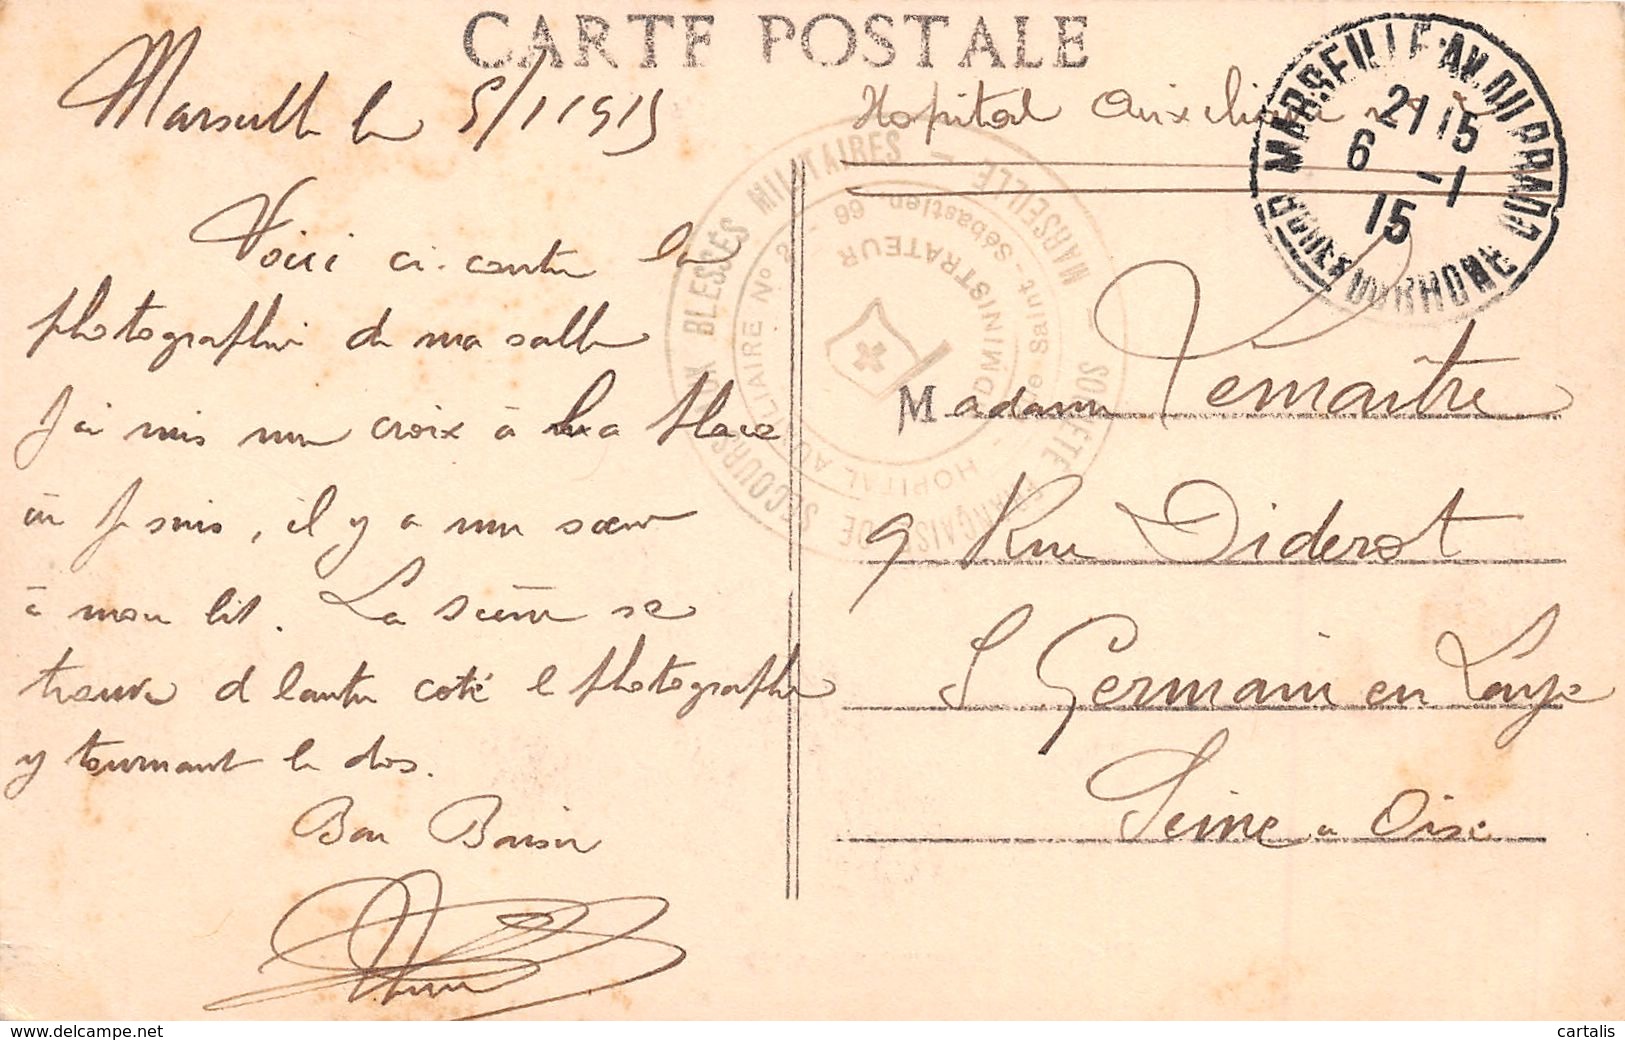 CARTE POSTALE
Marseille le 5/1 1915
Voici ci-contre la
photographie de ma salle
J'ai mis une croix à la place
où je suis, il y a une sœur
à mon lit. La sœur se
trouve d l'autre coté l photographe
y tournant le dos.
Bon Baiser
Hopital Auxiliaire
MARSEILLE-AV. DU PRADO
21 15
6 -1
15
BOUCHES DU RHONE
SOCIÉTÉ FRANÇAISE DE SECOURS AUX BLESSÉS MILITAIRES - MARSEILLE -
HOPITAL AUXILIAIRE N° 2 - 66 Rue Saint-Sébastien
ADMINISTRATEUR
Madame Lemaître
9 Rue Diderot
St Germain en Laye
Seine & Oise
www.delcampe.net
cartalis